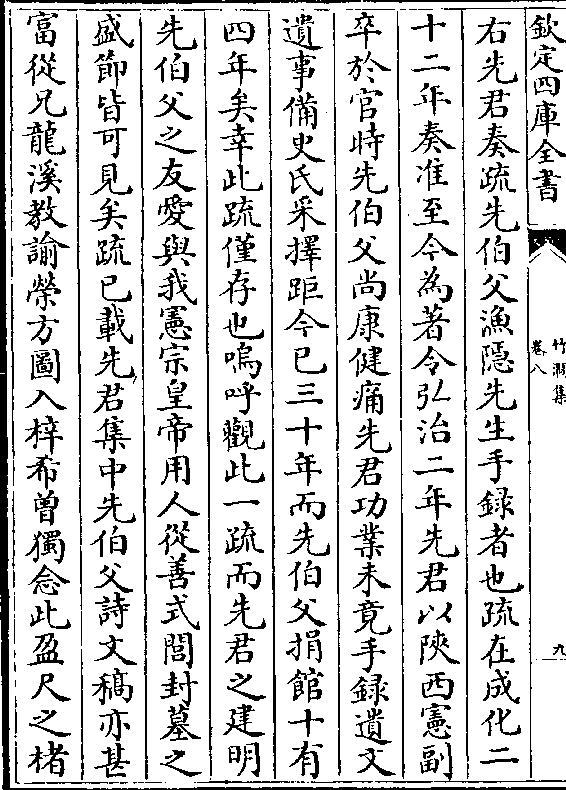 欽定四庫全書
竹澗集
卷八
九
右先君奏疏先伯父漁隱先生手録者也疏在成化二
十二年奏准至今為著令弘治二年先君以陜西憲副
卒於官時先伯父尚康健痛先君功業未竟手録遺文
遺事備史氏采擇距今已三十年而先伯父捐館十有
四年矣幸此疏僅存也嗚呼觀此一疏而先君之建明
先伯父之友愛與我憲宗皇帝用人從善式閭封墓之
盛節皆可見矣疏已載先君集中先伯父詩文稿亦甚
富從兄龍溪教諭榮方圖入梓希曽獨念此盈尺之楮